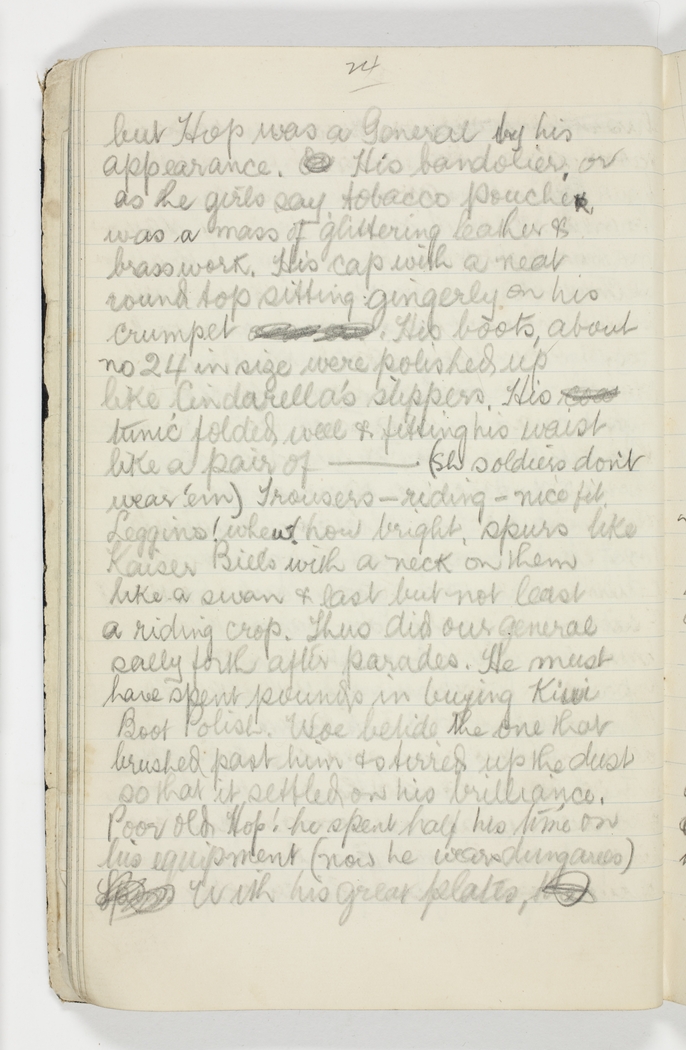 24
but Hop was a General by his
appearance. His bandolier, or
as the girls say tobacco pouches
was a mass of glittering leather &
brasswork. His cap with a neat
round top sitting gingerly on his
crumpet. His boots, about
no 24 in size were polished up
like Cindarella's slippers. His
tunic folded well & fitting his waist
like a pair of ——— (sh soldiers don't
wear 'em) Trousers – riding – nice fit.
Leggins! whew! how bright, spurs like
Kaiser Bill's with a neck on them
like a swan & last but not least
a riding crop. Thus did our general
sally forth after parades. He must
have spent pounds in buying Kiwi
Boot Polish. Woe betide the one that
brushed past him & stirred up the dust
so that it settled on his brilliance.
Poor old Hop! he spent half his time on
his equipment (now he wears dungarees)
With his great plates,